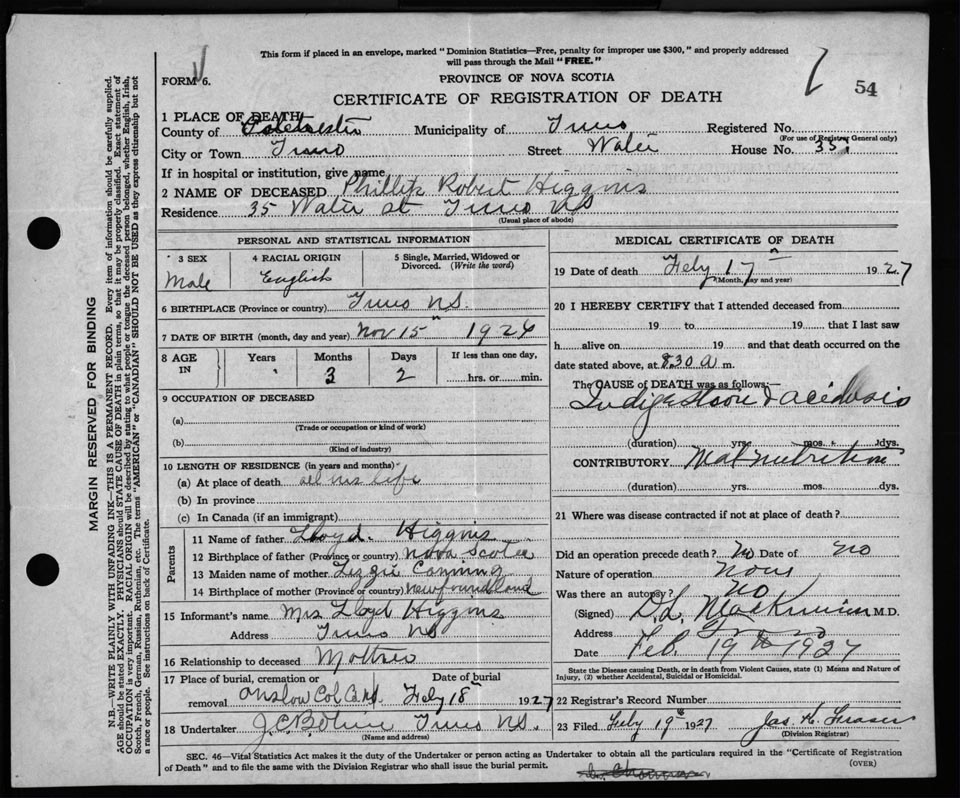 This form if placed in an envelope, marked "Dominion Statistics—Free, penalty for improper use $300," and properly addressed
will pass through the Mail "FREE."
FORM 6.
PROVINCE OF NOVA SCOTIA
54
CERTIFICATE OF REGISTRATION OF DEATH
1 PLACE OF DEATH
County of Colchester Municipality of Truro Registered No.
(For use of Registrar General only)
City or Town Truro Street Water House No. 35
If in hospital or institution, give name
2 NAME OF DECEASED Phillip Robert Higgins
Residence 35 Water St Truro NS
(Usual place of abode)
PERSONAL AND STATISTICAL INFORMATION
3 SEX 4 RACIAL ORIGIN 5 Single, Married, Widowed or
Divorced. (Write the word)
Male English
6 BIRTHPLACE (Province or country) Truro N.S.
7 DATE OF BIRTH (month, day and year) Nov 15 1926
8 AGE IN Years Months Days If less than one day,
3 2 hrs. or min.
9 OCCUPATION OF DECEASED
(a)
(Trade or occupation or kind of work)
(b)
(Kind of industry)
10 LENGTH OF RESIDENCE (in years and months)
(a) At place of death all his life
(b) In province
(c) In Canada (if an immigrant)
Parents
11 Name of father Lloyd. Higgins
12 Birthplace of father (Province or country) Nova Scotia
13 Maiden name of mother Lizzie Canning
14 Birthplace of mother (Province or country) Newfoundland
15 Informant's name Mrs Lloyd Higgins
Address Truro NS
16 Relationship to deceased Mother
17 Place of burial, cremation or Date of burial
removal Onslow Col Co NS Feby 18 1927
18 Undertaker Truro N.S.
(Name and address)
MEDICAL CERTIFICATE OF DEATH
19 Date of death Feby 17 1927
(Month, day and year)
20 I HEREBY CERTIFY that I attended deceased from
19 to 19 that I last saw
h alive on 19 and that death occurred on the
date stated above, at 8.30 a m.
The CAUSE of DEATH was as follows:—
Indigestion & acidosis
(duration) yrs. mos. dys.
CONTRIBUTORY Malnutrition
(duration) yrs. mos. dys.
21 Where was disease contracted if not at place of death?
Did an operation precede death? No Date of no
Nature of operation None
Was there an autopsy? No
(Signed) M.D.
Address Truro
Date Feb. 19th 1927
State the Disease causing Death, or in death from Violent Causes, state (1) Means and Nature of
Injury, (2) whether Accidental, Suicidal or Homicidal.
22 Registrar's Record Number
23 Filed Feby 19th 1927 Jas. H. Fraser
(Division Registrar)
SEC. 46—Vital Statistics Act makes it the duty of the Undertaker or person acting as Undertaker to obtain all the particulars required in the "Certificate of Registration
of Death" and to file the same with the Division Registrar who shall issue the burial permit.
(OVER)
MARGIN RESERVED FOR BINDING
N.B.—WRITE PLAINLY WITH UNFADING INK—THIS IS A PERMANENT RECORD. Every item of information should be carefully supplied.
AGE should be stated EXACTLY. PHYSICIANS should STATE CAUSE OF DEATH in plain terms, so that it may be properly classified. Exact statement of
OCCUPATION is very important. RACIAL ORIGIN will be described by stating to what people or tongue the deceased person belonged, whether English, Irish,
Scotch, French, German, Russian, Ruthenian, etc. The terms "AMERICAN" or "CANADIAN" SHOULD NOT BE USED as they express citizenship but not
a race or people. See instructions on back of Certificate.